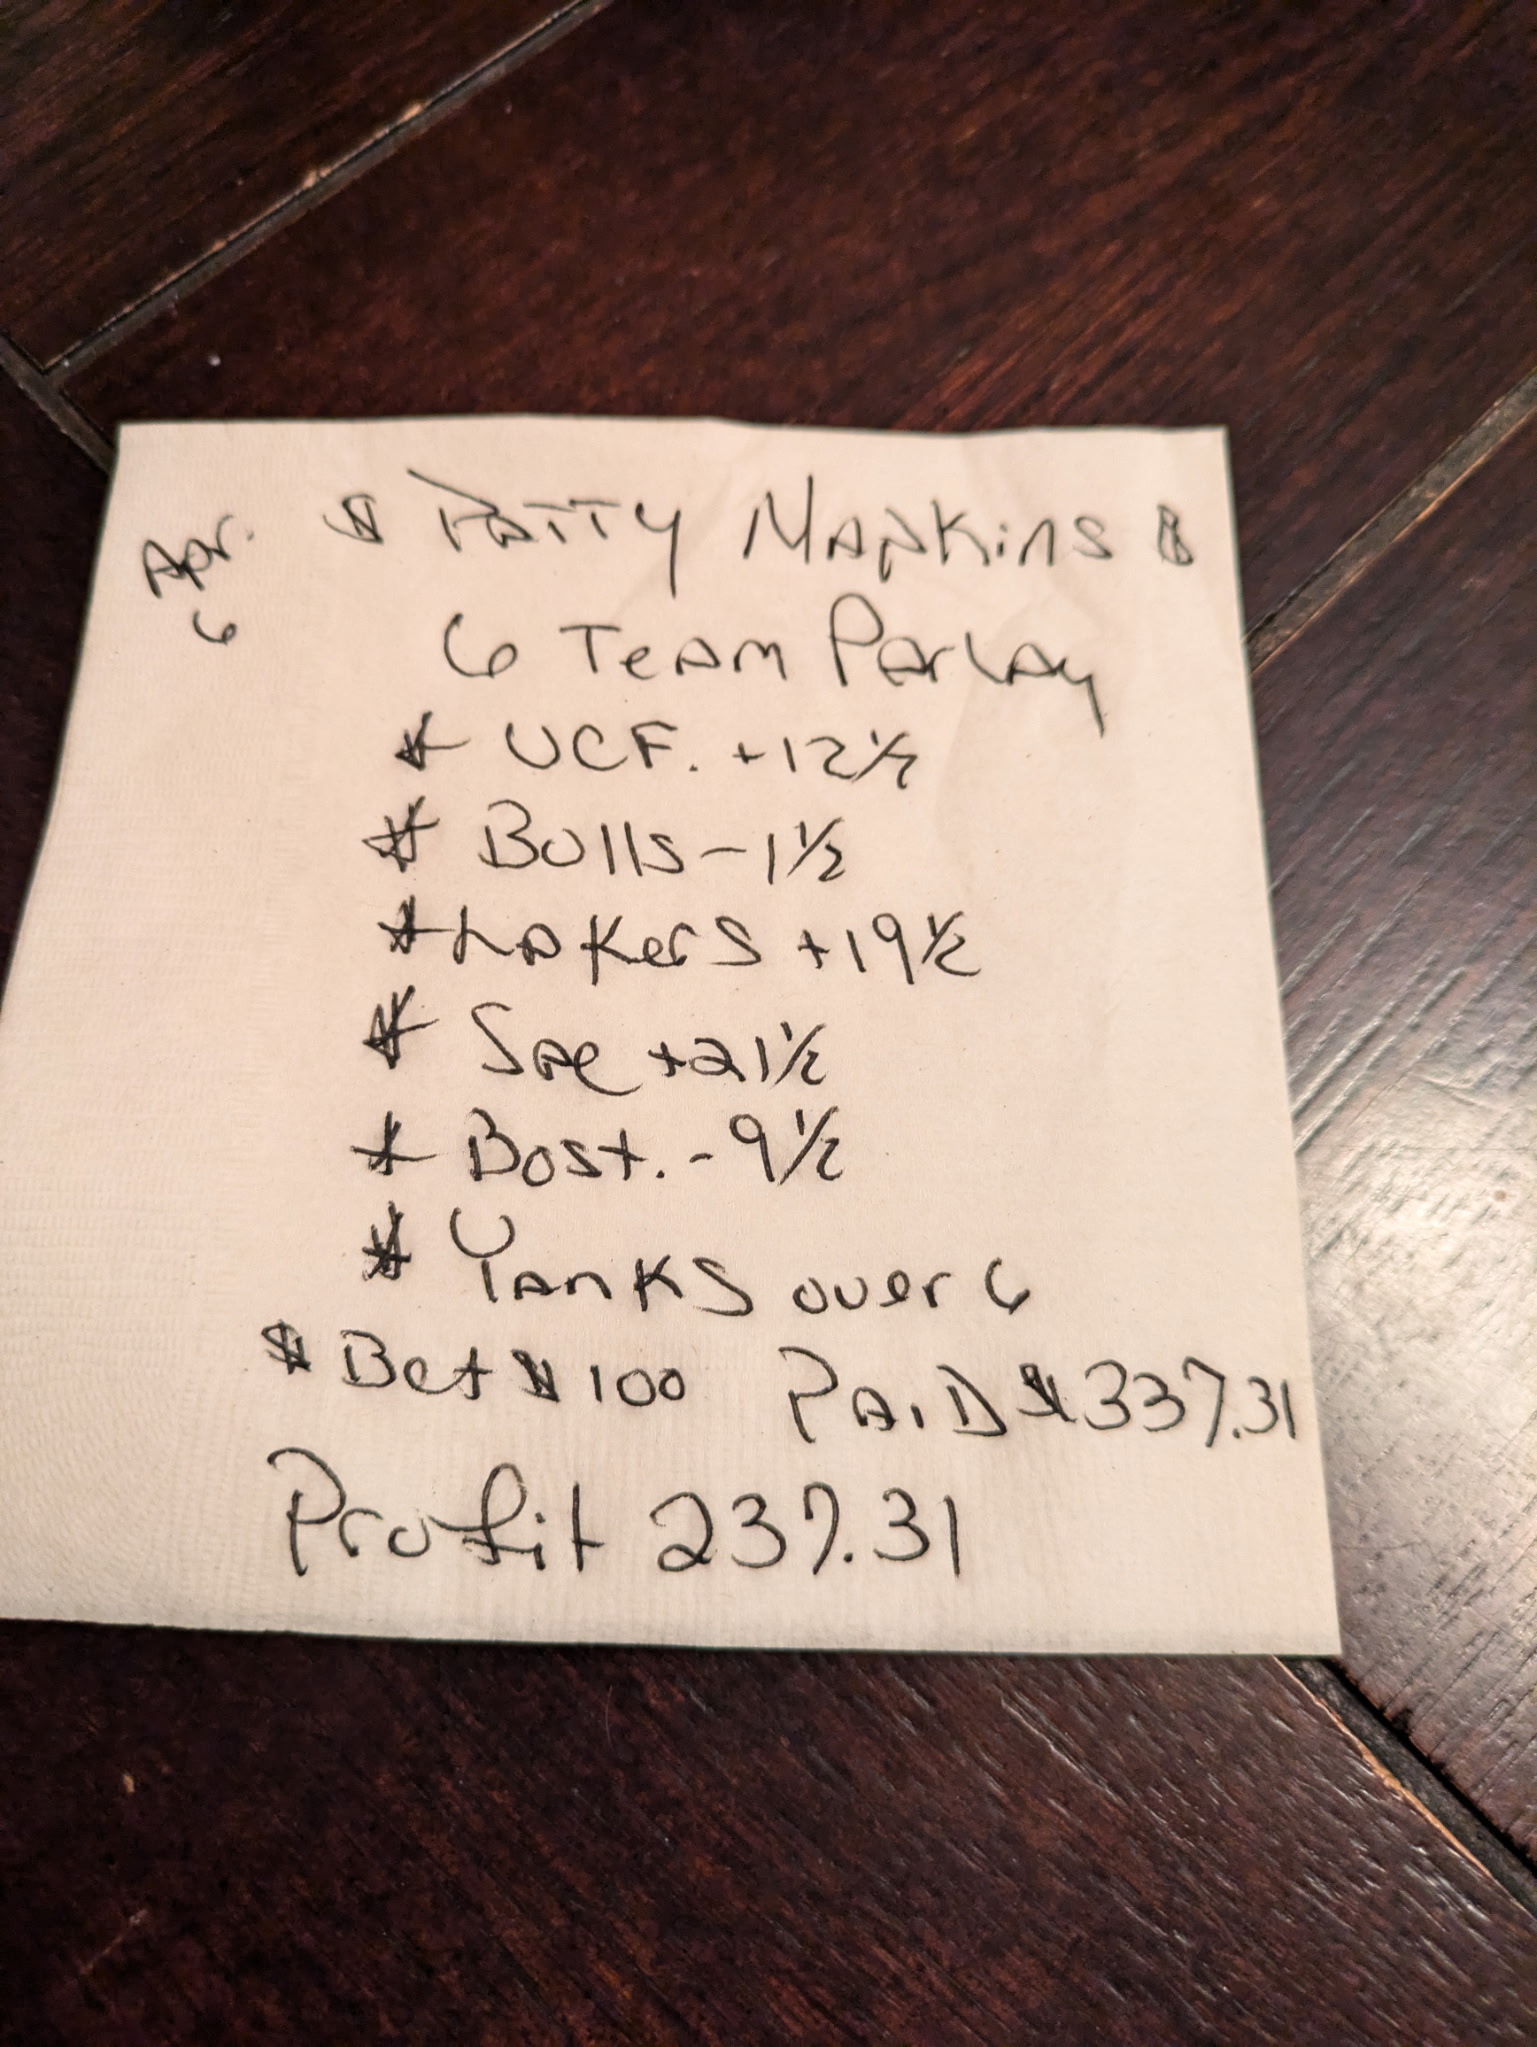 Apr. 6
$ Patty Napkins $
6 Team Parlay
* UCF. +12½
* Bulls -1½
* Lakers +19½
* Sac +21½
* Bost. -9½
* Yanks over 6
$ Bet $ 100 Paid $ 337.31
Profit 237.31